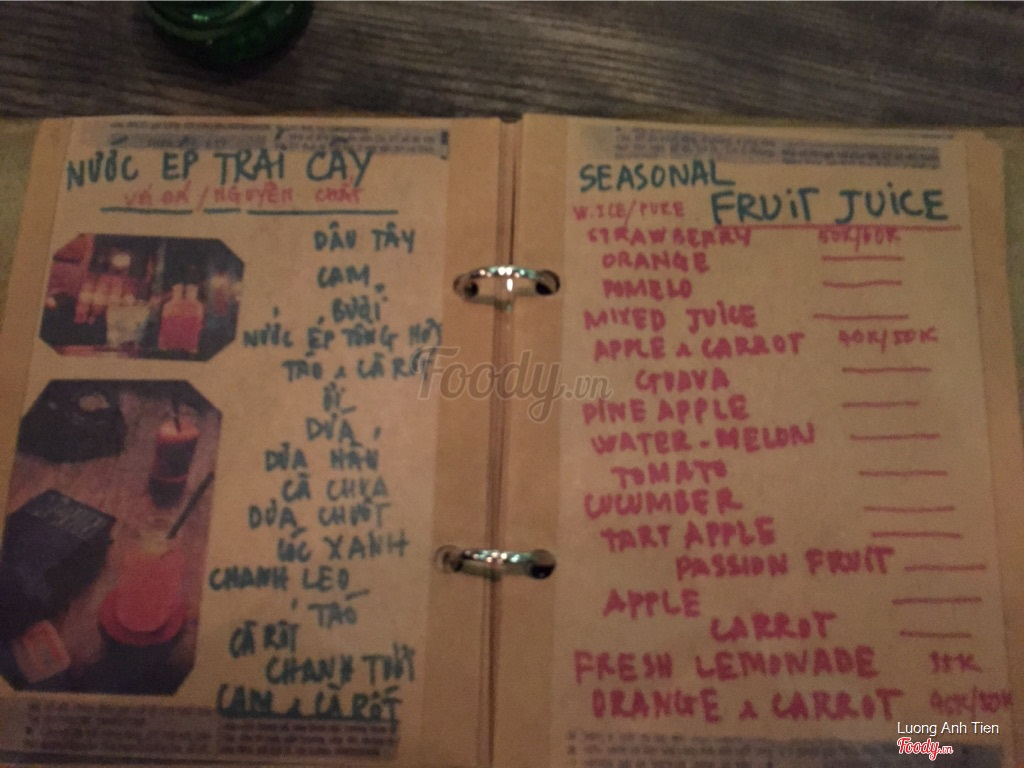 NƯỚC ÉP TRÁI CÂY
VỚI ĐÁ / NGUYÊN CHẤT
DÂU TÂY
CAM
BƯỞI
NƯỚC ÉP TỔNG HỢP
TÁO & CÀ RỐT
ỔI
DỨA
DƯA HẤU
CÀ CHUA
DƯA CHUỘT
CÓC XANH
CHANH LEO
TÁO
CÀ RỐT
CHANH TƯƠI
CAM & CÀ RỐT
SEASONAL
FRUIT JUICE
W.ICE/PURE
STRAWBERRY 50K/60K
ORANGE
POMELO
MIXED JUICE
APPLE & CARROT 40K/50K
GUAVA
PINE APPLE
WATER-MELON
TOMATO
CUCUMBER
TART APPLE
PASSION FRUIT
APPLE
CARROT
FRESH LEMONADE 35K
ORANGE & CARROT
Foody.vn
Luong Anh Tien
Foody.vn